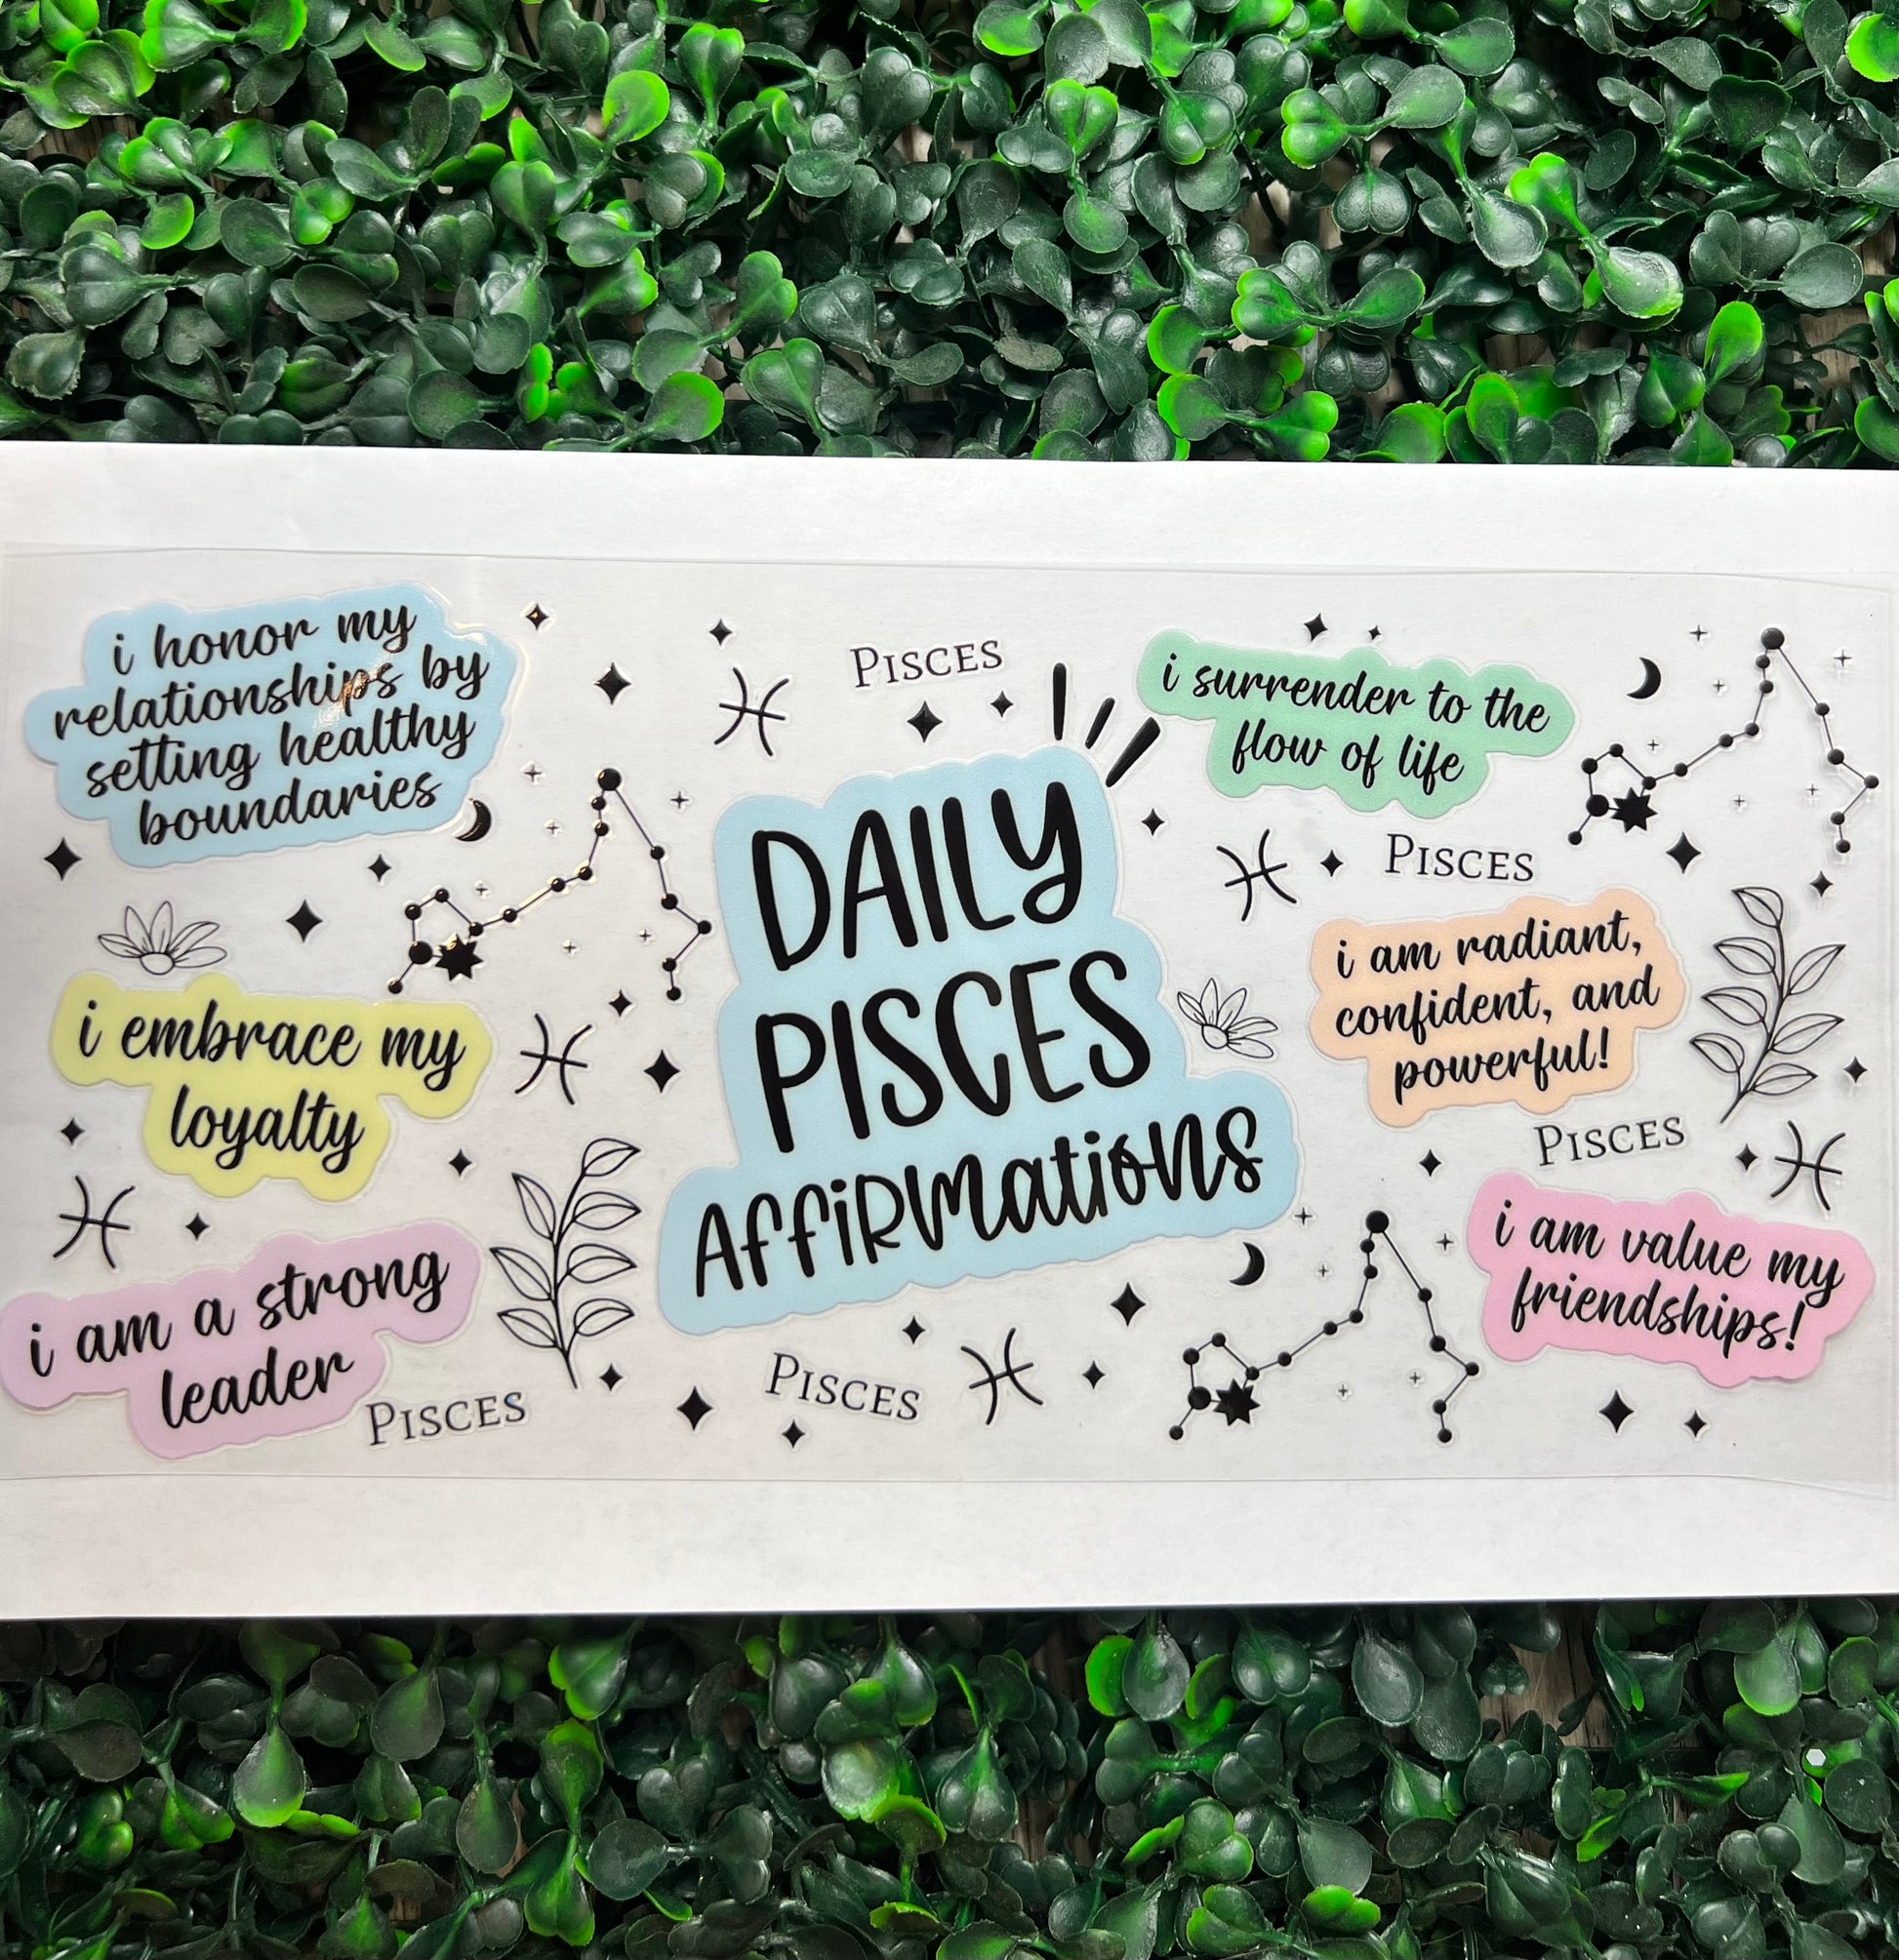 i honor my
relationships by
setting healthy
boundaries
PISCES
i surrender to the
flow of life
DAILY
PISCES
AFFiRmations
PISCES
i embrace my
loyalty
i am radiant,
confident, and
powerful!
PISCES
i am a strong
leader
PISCES
PISCES
i am value my
friendships!